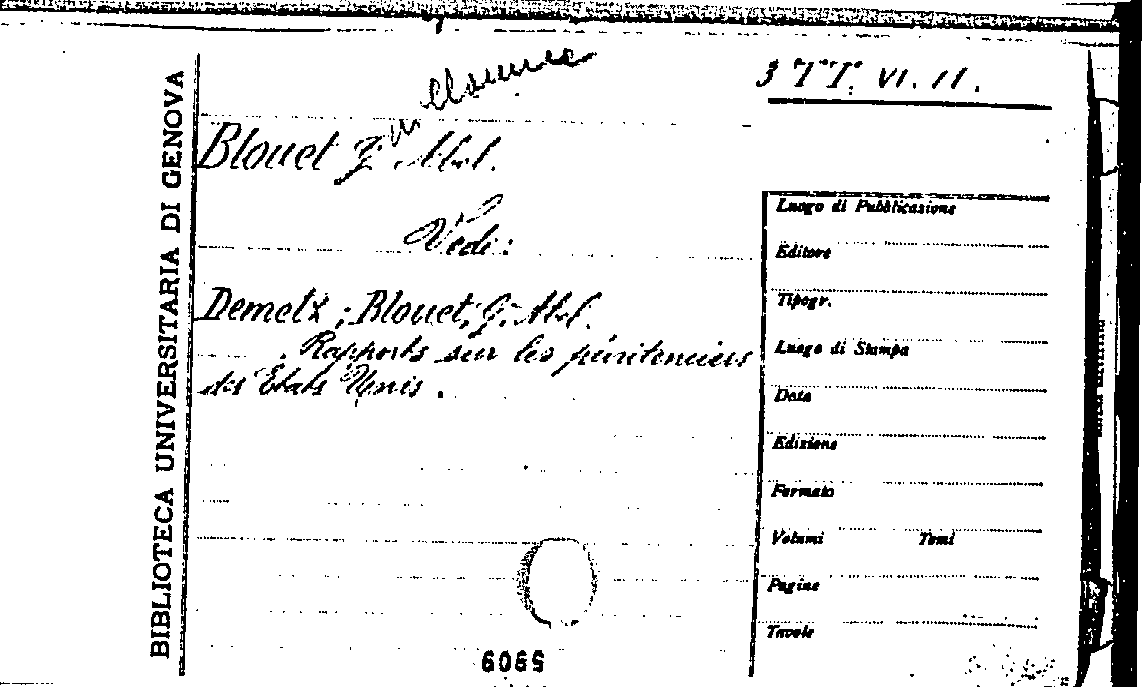 BIBLIOTECA UNIVERSITARIA DI GENOVA
3 TT. VI. 11.
Blouet G. Abel.
Vedi:
Demetz ; Blouet, G. Abel.
Rapports sur les pénitenciers
des États Unis.
Luogo di Pubblicazione
Editore
Tipogr.
Luogo di Stampa
Data
Edizione
Formato
Volumi Tomi
Pagine
Tavole